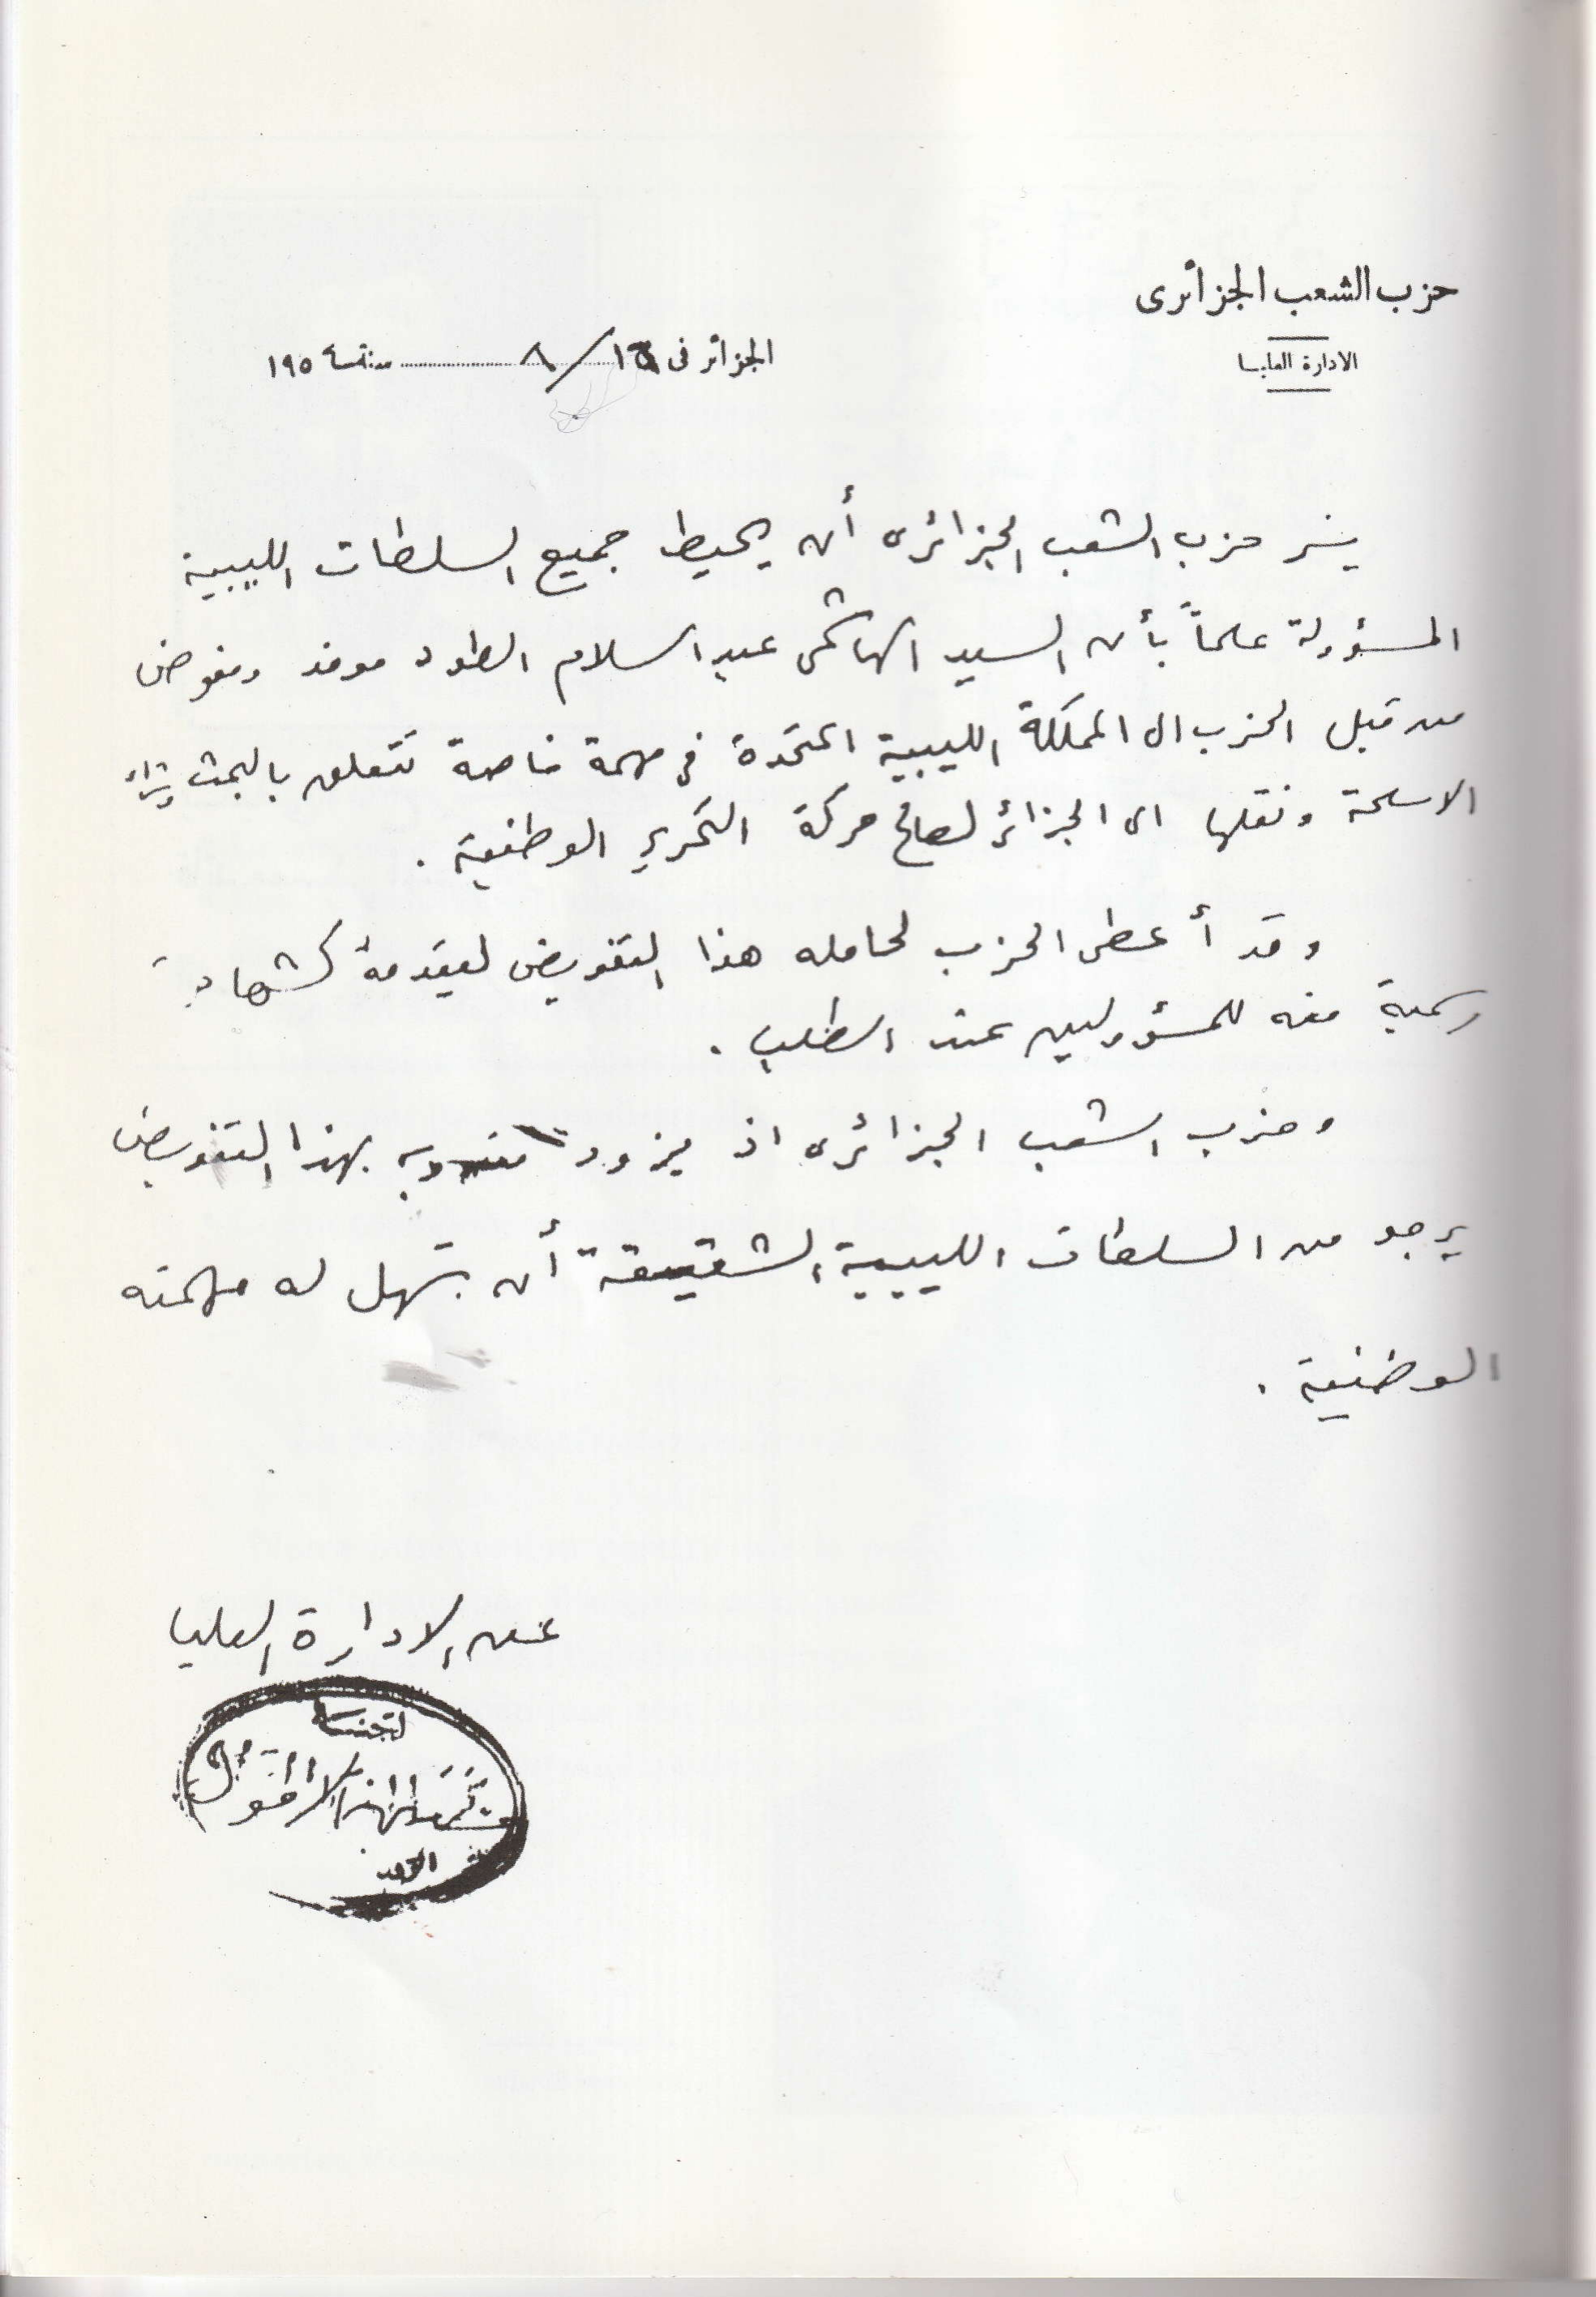 حزب الشعب الجزائرى
الادارة العليا
الجزائر فى / ٨ سنة ١٩٥٤
يسر حزب الشعب الجزائرى أن يحيط جميع السلطات الليبية
المسؤولة علماً بأن السيد الهاشمى عبد السلام الطود موفد ومفوض
من قبل الحزب الى المملكة الليبية المتحدة فى مهمة خاصة تتعلق بالبحث وشراء
الاسلحة ونقلها الى الجزائر لصالح حركة التحرير الوطنية .
وقد أعطى الحزب لحامله هذا التفويض ليقدمه كشهادة
رسمية منه للمسؤولين عند الطلب .
وحزب الشعب الجزائرى اذ يزود مندوبه بهذا التفويض
يرجو من السلطات الليبية الشقيقة أن تسهل له مهمته
الوطنية .
عن الادارة العليا
لجنة